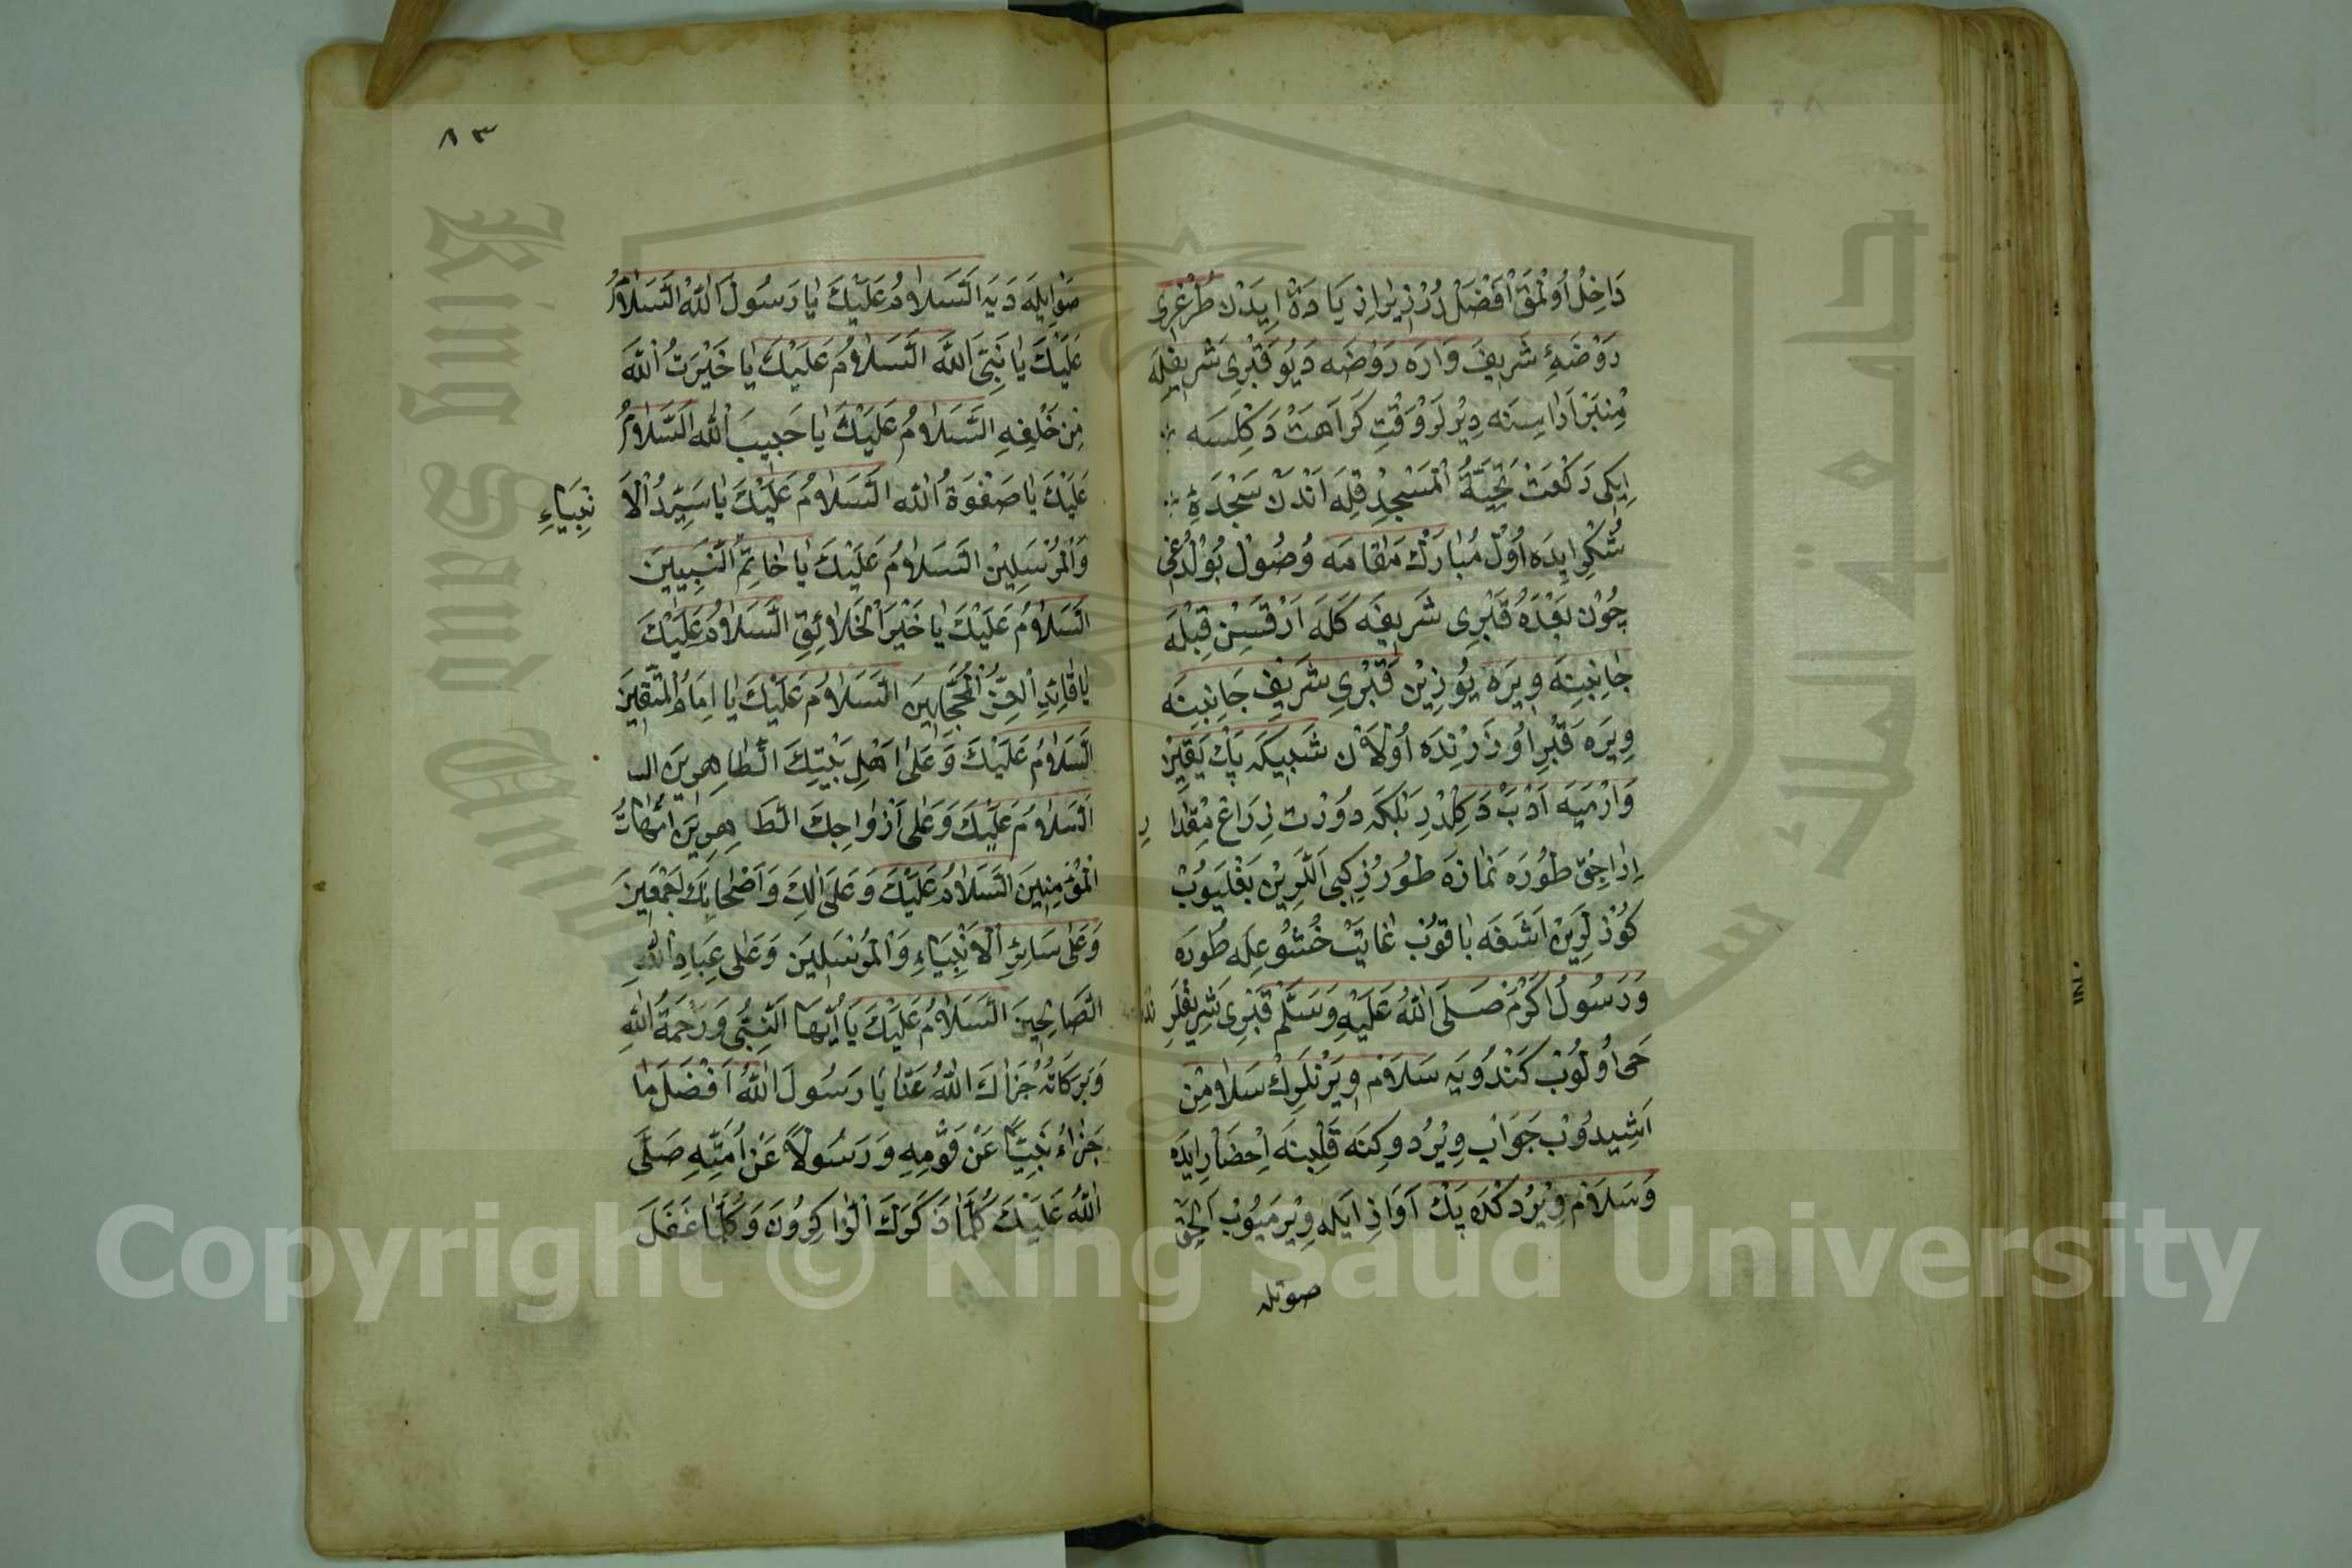 دَاخِلْ اُولْمَقْ اَفْضَلْ دُرْ زِيرَا زِيَادَهْ اِيدَنْ طُغْرِى
رَوْضَهٔ شَرِيفَ وَارَه رَوْضَه دَيُو قَبْرِى شَرِيفِلَه
مِنْبَرْ اَرَاسِنَه دِيْرلَرْ وَقْتِ كَرَاهَتْ دَكِلْسَه
اِيكِى رَكْعَتْ تَحِيَّةُ الْمَسْجِدْ قِلَه اَنْدَنْ سَجْدَهِٔ
شُكْرِ ايِدَه اُولْ مُبَارَكْ مَقَامَه وُصُولْ بُولْدُغِى
جُونْ بَعْدَهُ قَبْرِى شَرِيفَه كَلَه اَرْقَسِنْ قِبْلَه
جَانِبِنَه وِيرَه يُوزِينْ قَبْرِى شَرِيفِ جَانِبِنَه
وِيرَه قَبْرِ اُوزَرِنْدَه اُولَانْ شَبِيكَه يَكْ يَقِينْ
وَارْمَيَه اَدَبْ دَكِلْدِرْ بَلْكَه دُورْت ذِرَاعْ مِقْدَارِ
اِرَاجِقْ طُورَه نَمَازَه طُورُرْ كِبِى اَلَّرِينْ بَغْلَيُوبْ
كُوزْلَرِينْ اَشَغَه بَاقُوبْ غَايَتْ خُشُوعِلَه طُورَه
وَرَسُولُ اَكْرَمْ صَلَّى اللّٰهُ عَلَيْهِ وَسَلَّمْ قَبْرِى شَرِيفْلَرِنْدَه
حَى اُولُوبْ كَنْدُويَه سَلَامْ وِيرَنْلَرِكْ سَلَامِنْ
اَشِيدُوبْ جَوَابْ وِيْرُدوكِنَه قَلْبِنَه اِحْضَارْ ايِدَه
وَسَلَامْ وِيْرُدكْدَه يَكْ اَوَازِ اَيلَه وِيْرمَيُوبْ اَلْجَقْ
صوتله
٨٣
صَوْتِ ايِلَه دَيَه اَلسَّلَامُ عَلَيْكَ يَا رَسُولَ اللّٰهْ اَلسَّلَامُ
عَلَيْكَ يَا نَبِىَّ اللّٰهَ اَلسَّلَامُ عَلَيْكَ يَا خَيْرَتُ اللّٰهَ
مِنْ خَلْقِهِ اَلسَّلَامُ عَلَيْكَ يَا حَبِيبَ اللّٰه اَلسَّلَامُ
عَلَيْكَ يَا صَفْوَةُ اللّٰه اَلسَّلَامُ عَلَيْكَ يَا سَيِّدُ اْلاَ
نْبِيَاءِ
وَالْمُرْسَلِينْ اَلسَّلَامُ عَلَيْكَ يَا خَاتِمَ النَّبِيّينَ
اَلسَّلَامُ عَلَيْكَ يَا خَيْرَ الْخَلَائِقِ اَلسَّلَامُ عَلَيْكَ
يَا قَائِدِ الْغُرِّ الْمُحَجَّلِينَ اَلسَّلَامُ عَلَيْكَ يَا اِمَامُ الْمُتَّقِينَ
اَلسَّلَامُ عَلَيْكَ وَعَلٰى اَهْلِ بَيْتِكَ الطَّاهِرِينَ الس
اَلسَّلَامُ عَلَيْكَ وَعَلٰى اَزْوَاجِكَ الطَّاهِرِينَ اُمَّهَاتُ
الْمُؤْمِنِينَ اَلسَّلَامُ عَلَيْكَ وَعَلٰى اٰلِكَ وَاَصْحَابِكَ اَجْمَعِينَ
وَعَلٰى سَائِرِ الْاَنْبِيَاءِ وَالْمُرْسَلِينَ وَعَلٰى عِبَادِ اللّٰهِ
الصَّالِحِينَ اَلسَّلَامُ عَلَيْكَ يَا اَيُّهَا النَّبِىُّ وَرَحْمَةُ اللّٰهِ
وَبَرَكَاتُهُ جَزَاكَ اللّٰهُ عَنَّا يَا رَسُولَ اللّٰهُ اَفْضَلَ مَا
جَزَاءُ نَبِيًّا عَنْ قَوْمِهِ وَرَسُولًا عَنْ اُمَّتِهِ صَلَّى
اللّٰهُ عَلَيْكَ كُلَّمَا ذَكَرَكَ الذَّاكِرُونَ وَكُلَّمَا غَفَلَ
King Saud University
جامعة الملك سعود
Copyright © King Saud University